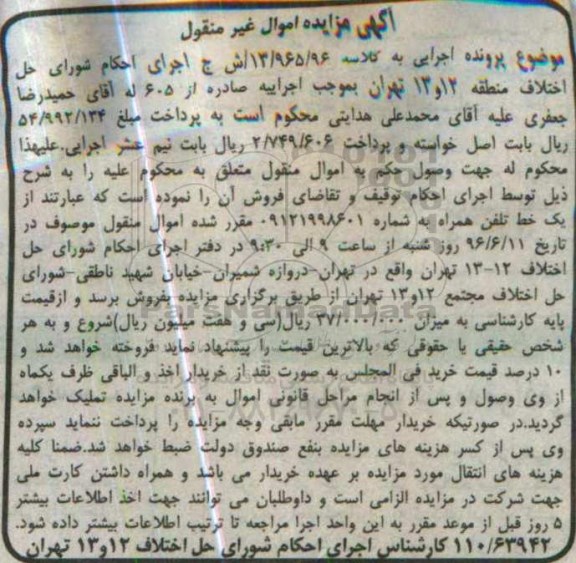 آگهی مزایده اموال غیر منقول
موضوع پرونده اجرایی به کلاسه ۱۳/۹۶۵/۹۶/ش ح اجرای احکام شورای حل
اختلاف منطقه ۱۲و۱۳ تهران بموجب اجراییه صادره از ۶۰۵ له آقای حمیدرضا
جعفری علیه آقای محمدعلی هدایتی محکوم است به پرداخت مبلغ ۵۴/۹۹۲/۱۳۴
ریال بابت اصل خواسته و پرداخت ۲/۷۴۹/۶۰۶ ریال بابت نیم عشر اجرایی.علیهذا
محکوم له جهت وصول حکم به اموال منقول متعلق به محکوم علیه را به شرح
ذیل توسط اجرای احکام توقیف و تقاضای فروش آن را نموده است که عبارتند از
یک خط تلفن همراه به شماره ۰۹۱۲۱۹۹۸۶۰۱ مقرر شده اموال منقول موصوف در
تاریخ ۹۶/۶/۱۱ روز شنبه از ساعت ۹ الی ۹:۳۰ در دفتر اجرای احکام شورای حل
اختلاف ۱۲-۱۳ تهران واقع در تهران-دروازه شمیران-خیابان شهید ناطقی-شورای
حل اختلاف مجتمع ۱۲و۱۳ تهران از طریق برگزاری مزایده بفروش برسد و ازقیمت
پایه کارشناسی به میزان ۳۷/۰۰۰/۰۰۰ ریال(سی و هفت میلیون ریال)شروع و به هر
شخص حقیقی یا حقوقی که بالاترین قیمت را پیشنهاد نماید فروخته خواهد شد و
۱۰ درصد قیمت خرید فی المجلس به صورت نقد از خریدار اخذ و الباقی ظرف یکماه
از وی وصول و پس از انجام مراحل قانونی اموال به برنده مزایده تملیک خواهد
گردید.در صورتیکه خریدار مهلت مقرر مابقی وجه مزایده را پرداخت ننماید سپرده
وی پس از کسر هزینه های مزایده بنفع صندوق دولت ضبط خواهد شد.ضمنا کلیه
هزینه های انتقال مورد مزایده بر عهده خریدار می باشد و همراه داشتن کارت ملی
جهت شرکت در مزایده الزامی است و داوطلبان می توانند جهت اخذ اطلاعات بیشتر
۵ روز قبل از موعد مقرر به این واحد اجرا مراجعه تا ترتیب اطلاعات بیشتر داده شود.
۱۱۰/۶۳۹۴۲ کارشناس اجرای احکام شورای حل اختلاف ۱۲و۱۳ تهران
ParsNamadData